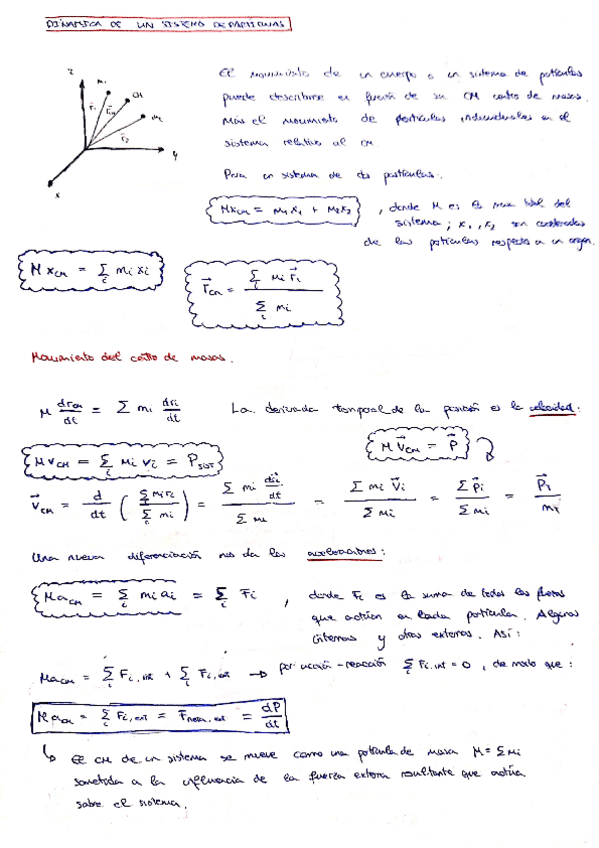 DINÁMICA DE UN SISTEMA DE PARTÍCULAS
z
m₁
CM
m₂
r⃗₁
r⃗cm
r⃗₂
y
x
El movimiento de un cuerpo o un sistema de partículas
puede describirse en función de su CM centro de masas.
Más el movimiento de partículas individuales en el
sistema relativo al CM.
Para un sistema de dos partículas.
Mxcm = m₁x₁ + m₂x₂ , donde M es la masa total del
sistema; x₁, x₂ son coordenadas
de las partículas respecto a un origen.
M xcm = Σi mi xi
r⃗cm = Σi mi r⃗i / Σi mi
Movimiento del centro de masas.
M drcm/dt = Σ mi dri/dt La derivada temporal de la posición es la velocidad:
M vcm = Σi mi vi = Psist
M v⃗cm = P⃗
v⃗cm = d/dt ( Σi miri / Σi mi ) = Σ mi dr⃗i/dt / Σ mi = Σ mi v⃗i / Σ mi = Σ p⃗i / Σ mi = P⃗T / mT
Una nueva diferenciación nos da las aceleraciones:
Macm = Σi mi ai = Σi Fi , donde Fi es la suma de todas las fuerzas
que actúan en cada partícula. Algunas
internas y otras externas. Así:
Macm = Σi Fi,int + Σi Fi,ext → por acción-reacción Σi Fi,int = 0, de modo que:
Macm = Σi Fi,ext = Fneta,ext = dP/dt
↳ El CM de un sistema se mueve como una partícula de masa M = Σmi
sometida a la influencia de la fuerza externa resultante que actúa
sobre el sistema.